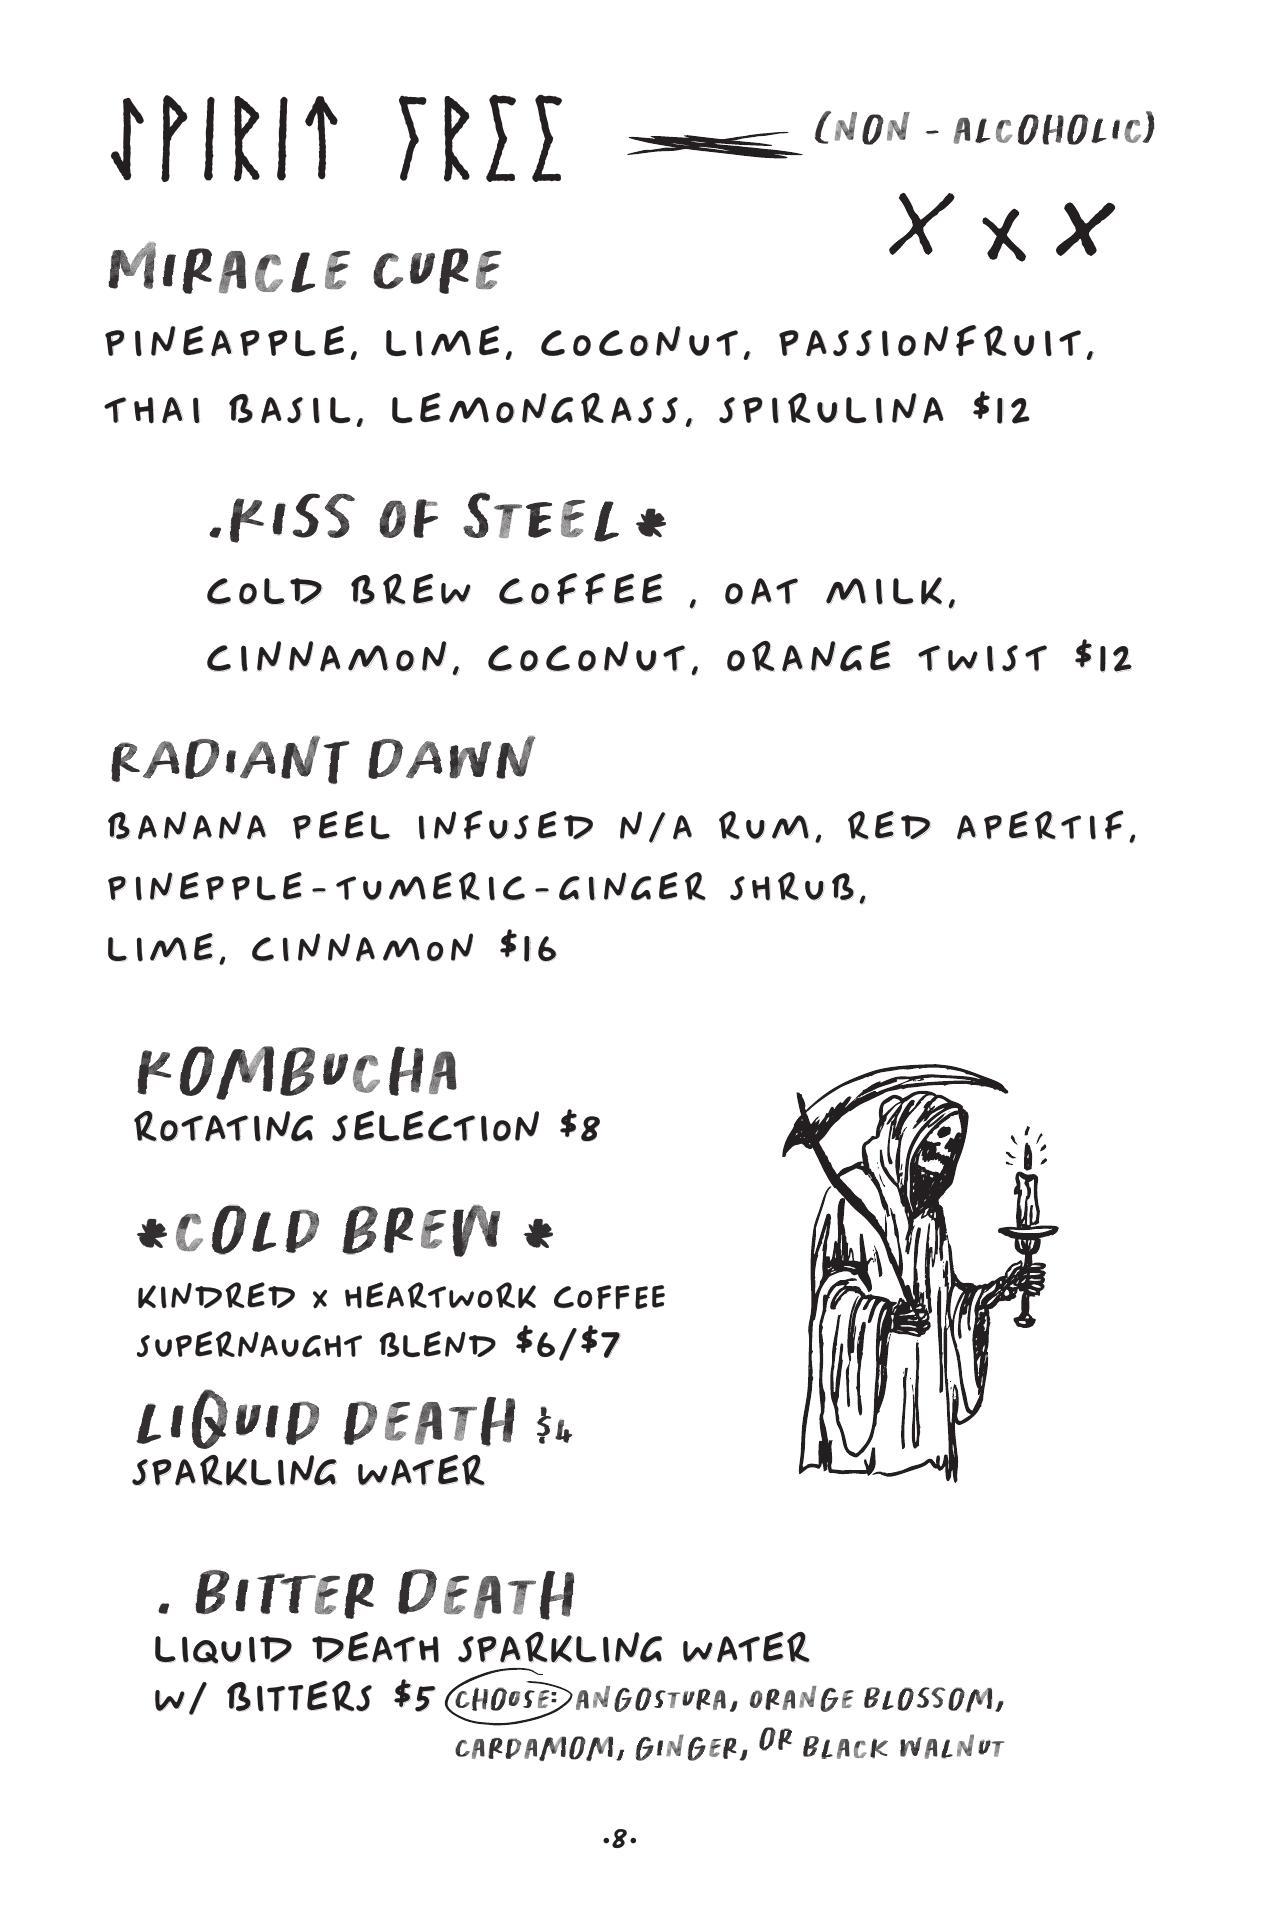 SPIRIT FREE (NON - ALCOHOLIC)
X X X
MIRACLE CURE
PINEAPPLE, LIME, COCONUT, PASSIONFRUIT,
THAI BASIL, LEMONGRASS, SPIRULINA $12
.KISS OF STEEL*
COLD BREW COFFEE , OAT MILK,
CINNAMON, COCONUT, ORANGE TWIST $12
RADIANT DAWN
BANANA PEEL INFUSED N/A RUM, RED APERTIF,
PINEPPLE-TUMERIC-GINGER SHRUB,
LIME, CINNAMON $16
KOMBUCHA
ROTATING SELECTION $8
*COLD BREW *
KINDRED X HEARTWORK COFFEE
SUPERNAUGHT BLEND $6/$7
LIQUID DEATH $4
SPARKLING WATER
. BITTER DEATH
LIQUID DEATH SPARKLING WATER
W/ BITTERS $5 CHOOSE: ANGOSTURA, ORANGE BLOSSOM,
CARDAMOM, GINGER, OR BLACK WALNUT
·8·